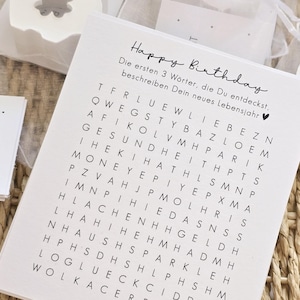 Happy Birthday
Die ersten 3 Wörter, die Du entdeckst,
beschreiben Dein neues Lebensjahr ♥
T F R L U E W L I E B E Z N
Q W E G S T Y B A Z L O E M
A F I K O L V M H P A R I K
G E S U N D H E I T H P T S
I H E K I H A T H L S M N P
M O N E Y E P I Y E P X M A
P Z V A H J P M O L H R I S
I M N P I H I E D A S N S S
H L A C H E N H H G E L D H
L H A H I H E H M H A D M H
N H A U S H S P A R K L E H
H P H S D H S H L P H S H M
L O G L U E C K C I D D
W O L K A C E R